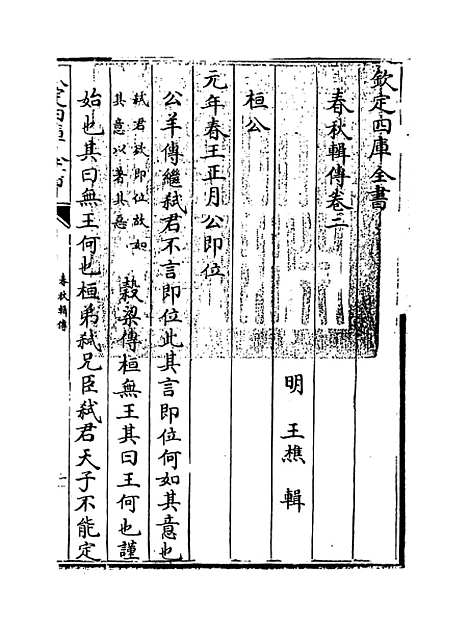 欽定四庫全書
春秋輯傳卷二
明 王樵 輯
桓公
元年春王正月公即位
公羊傳繼弒君不言即位此其言即位何如其意也
弒君欲即位故如
其意以著其惡
穀梁傳桓無王其曰王何也謹
始也其曰無王何也桓弟弒兄臣弒君天子不能定
春秋輯傳
一